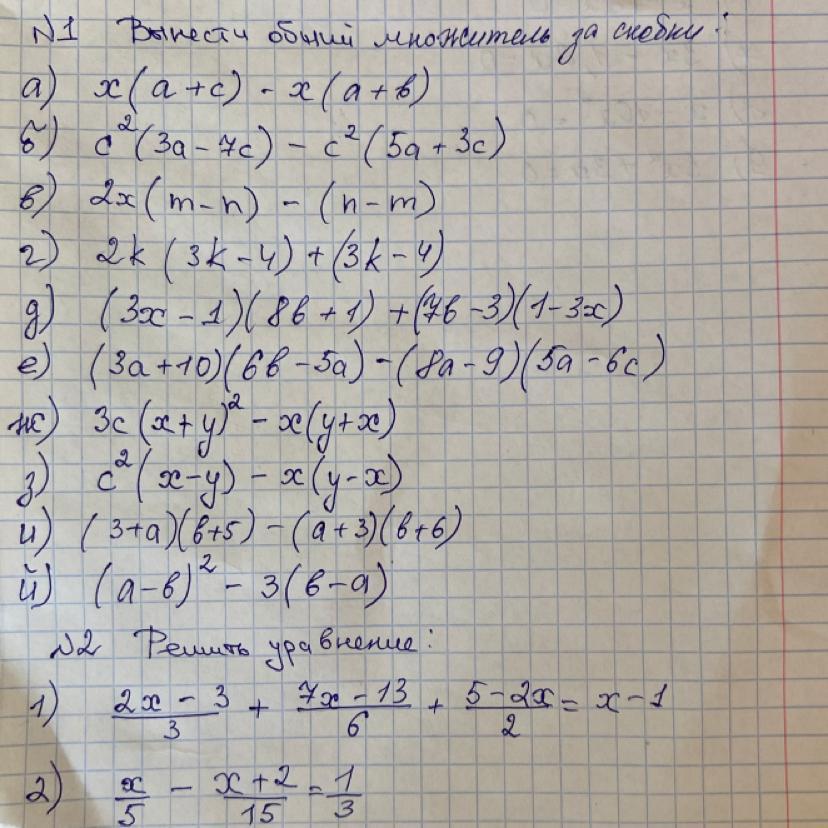 №1 Вынести общий множитель за скобки:
а) x(a+c) - x(a+b)
б) c²(3a-7c) - c²(5a+3c)
в) 2x(m-n) - (n-m)
г) 2k(3k-4)+(3k-4)
д) (3x-1)(8b+1)+(7b-3)(1-3x)
е) (3a+10)(6b-5a)-(8a-9)(5a-6c)
ж) 3c(x+y)² - x(y+x)
з) c²(x-y) - x(y-x)
и) (3+a)(b+5)-(a+3)(b+6)
й) (a-b)² - 3(b-a)
№2 Решить уравнение:
1) (2x-3)/3 + (7x-13)/6 + (5-2x)/2 = x-1
2) x/5 - (x+2)/15 = 1/3